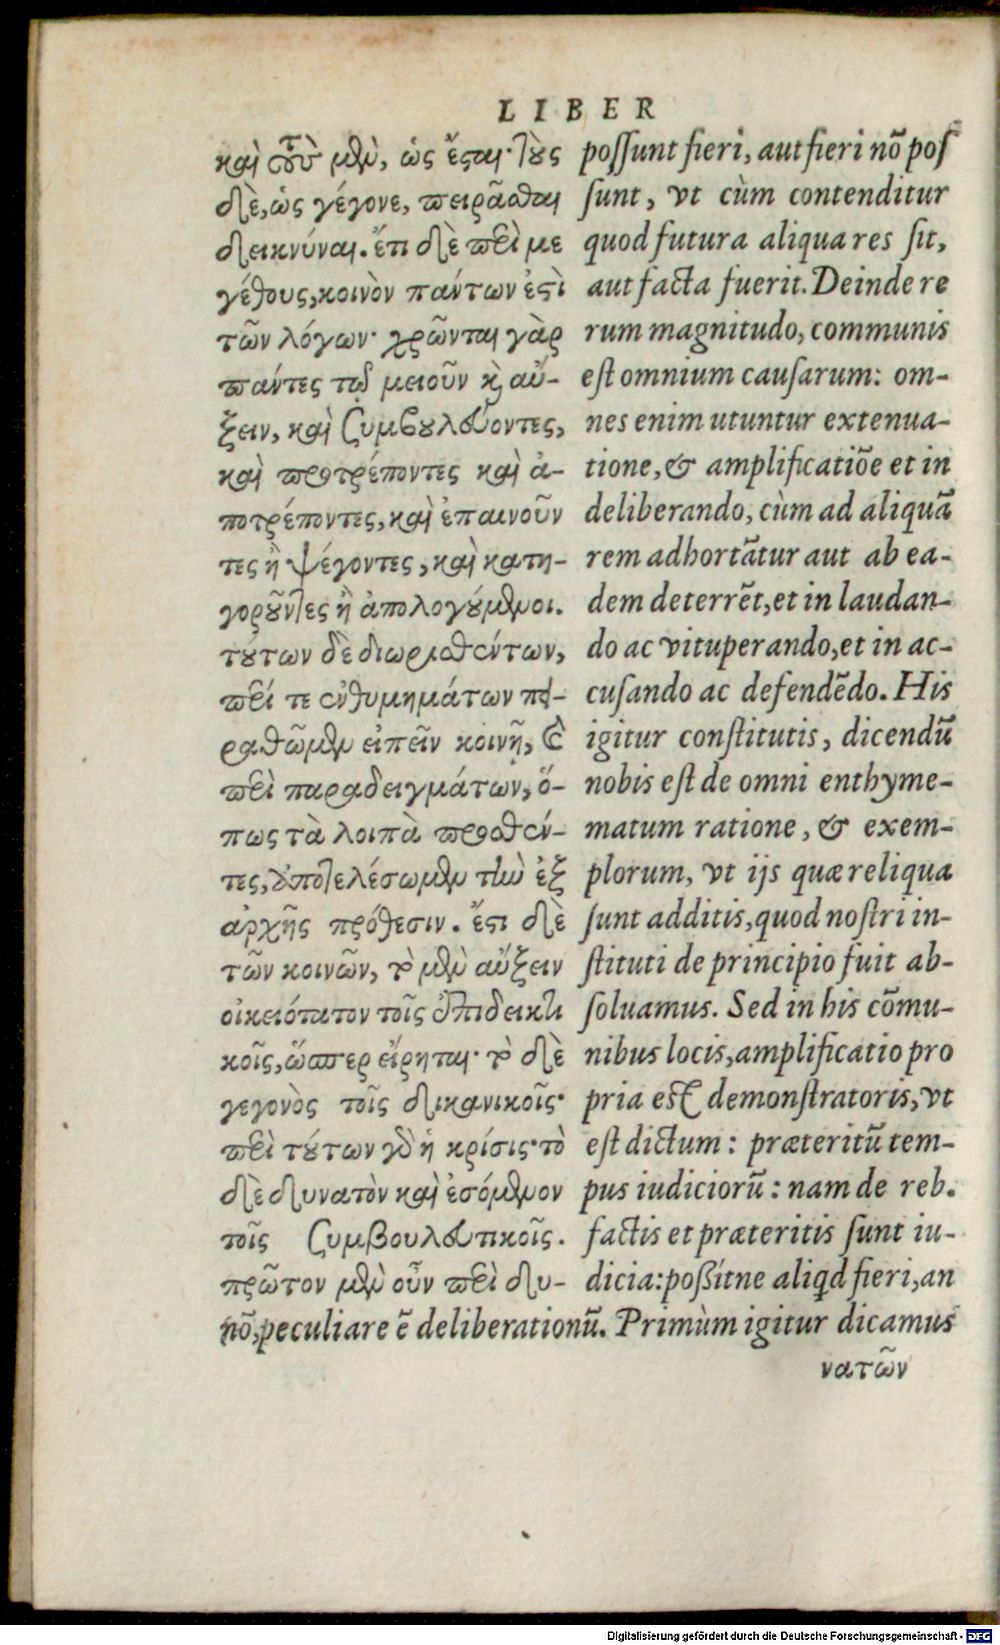 LIBER
καὶ τοὺς μὲν, ὡς ἔσται· τοὺς
δὲ, ὡς γέγονε, πειρᾶσθαι
δεικνύναι. ἔτι δὲ περὶ με
γέθους, κοινὸν πάντων ἐστὶ
τῶν λόγων· χρῶνται γὰρ
πάντες τῷ μειοῦν καὶ αὔ-
ξειν, καὶ συμβουλεύοντες,
καὶ προτρέποντες καὶ ἀ-
ποτρέποντες, καὶ ἐπαινοῦν
τες ἢ ψέγοντες, καὶ κατη-
γοροῦντες ἢ ἀπολογούμενοι.
τούτων δὲ διωρισθέντων,
περί τε ἐνθυμημάτων πει-
ραθῶμεν εἰπεῖν κοινῇ, καὶ
περὶ παραδειγμάτων, ὅ-
πως τὰ λοιπὰ προσθέν-
τες, ἀποτελέσωμεν τὴν ἐξ
ἀρχῆς πρόθεσιν. ἔστι δὲ
τῶν κοινῶν, τὸ μὲν αὔξειν
οἰκειότατον τοῖς ἐπιδεικτι
κοῖς, ὥσπερ εἴρηται· τὸ δὲ
γεγονὸς τοῖς δικανικοῖς·
περὶ τούτων γὰρ ἡ κρίσις· τὸ
δὲ δυνατὸν καὶ ἐσόμενον
τοῖς συμβουλευτικοῖς.
πρῶτον μὲν οὖν περὶ δυ-
poſſunt fieri, aut fieri nõ poſ
ſunt, vt cùm contenditur
quod futura aliqua res ſit,
aut facta fuerit. Deinde re
rum magnitudo, communis
eſt omnium cauſarum: om-
nes enim utuntur extenua-
tione, & amplificatiõe et in
deliberando, cùm ad aliquã
rem adhortãtur aut ab ea-
dem deterrẽt, et in laudan-
do ac vituperando, et in ac-
cuſando ac defendẽdo. His
igitur conſtitutis, dicendũ
nobis eſt de omni enthyme-
matum ratione, & exem-
plorum, vt ijs quæ reliqua
ſunt additis, quod noſtri in-
ſtituti de principio fuit ab-
ſoluamus. Sed in his cõmu-
nibus locis, amplificatio pro
pria est demonſtratoris, vt
eſt dictum: præteritũ tem-
pus iudiciorũ: nam de reb.
factis et præteritis ſunt iu-
dicia: poßítne aliꝗd fieri, an
nõ, peculiare ẽ deliberationũ. Primùm igitur dicamus
νατῶν
Digitalisierung gefördert durch die Deutsche Forschungsgemeinschaft - DFG